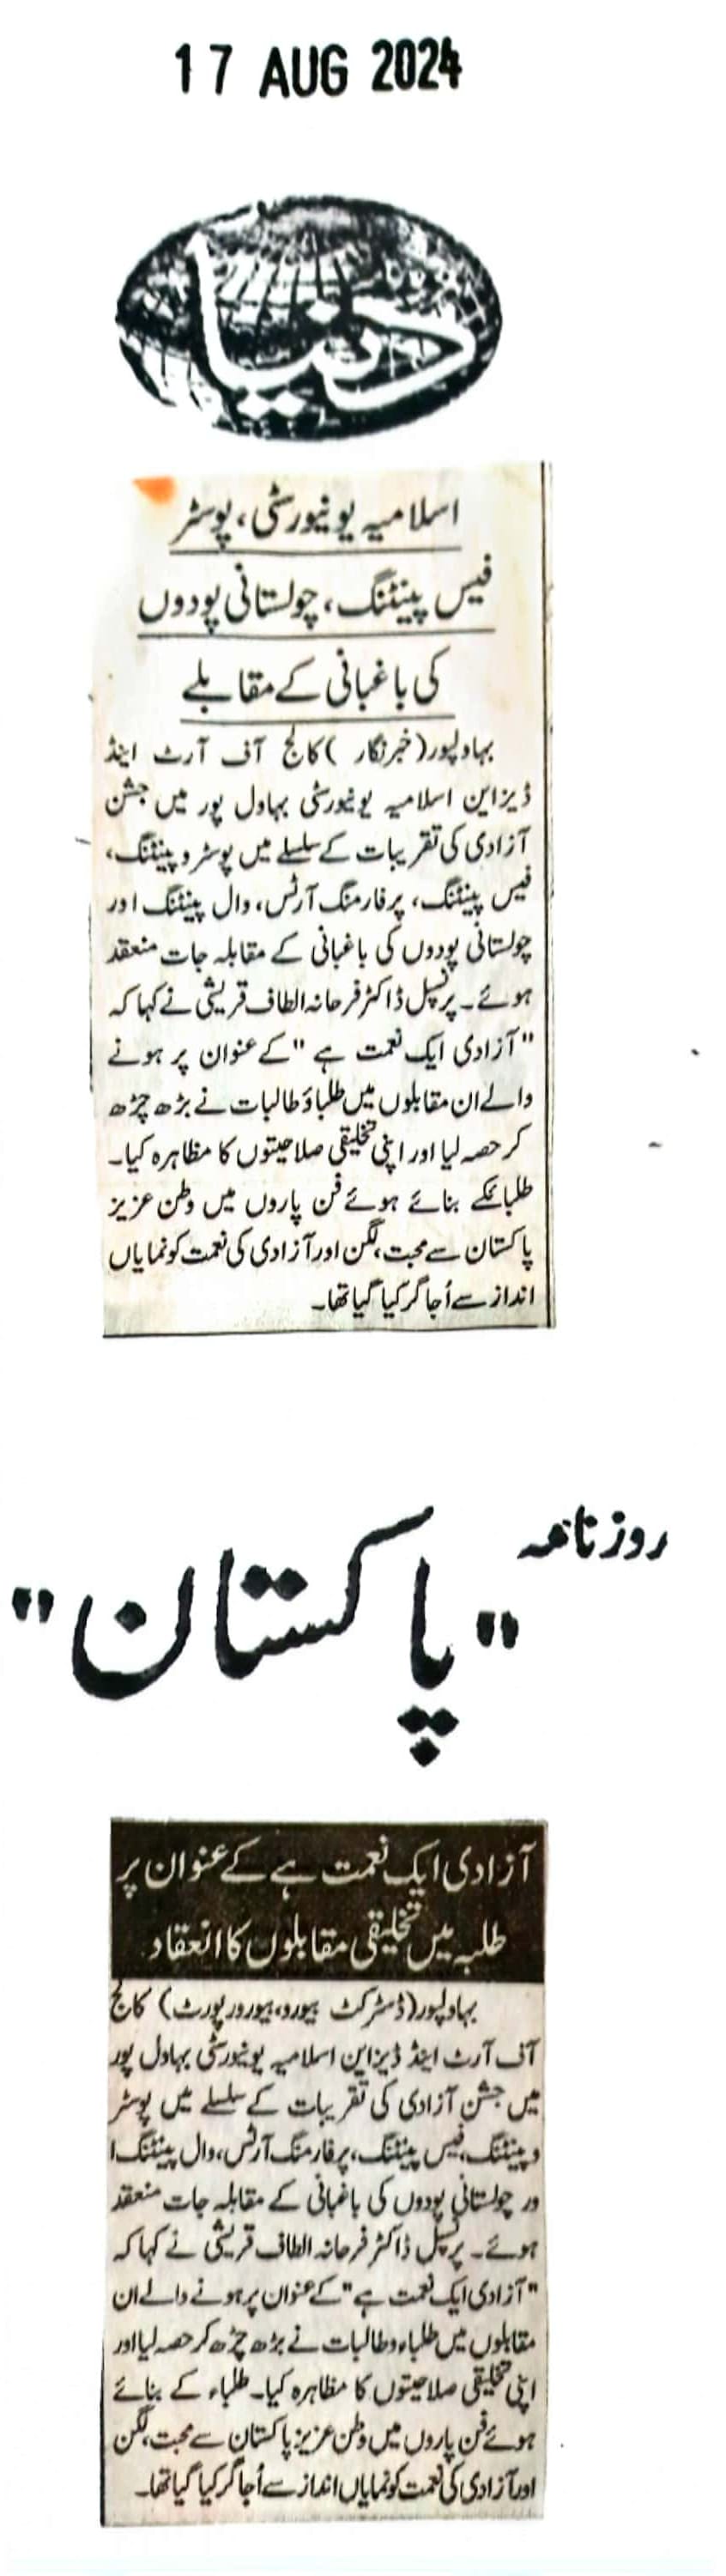 17 AUG 2024
دنیا
اسلامیہ یونیورسٹی، پوسٹر
فیس پینٹنگ، چولستانی پودوں
کی باغبانی کے مقابلے
بہاولپور(خبرنگار )کالج آف آرٹ اینڈ
ڈیزاین اسلامیہ یونیورسٹی بہاول پور میں جشن
آزادی کی تقریبات کے سلسلے میں پوسٹر و پینٹنگ،
فیس پینٹنگ، پرفارمنگ آرٹس، وال پینٹنگ اور
چولستانی پودوں کی باغبانی کے مقابلہ جات منعقد
ہوئے۔ پرنسپل ڈاکٹر فرحانہ الطاف قریشی نے کہا کہ
"آزادی ایک نعمت ہے "کے عنوان پر ہونے
والے ان مقابلوں میں طلباؤ طالبات نے بڑھ چڑھ
کر حصہ لیا اور اپنی تخلیقی صلاحیتوں کا مظاہرہ کیا۔
طلبائکے بنائے ہوئے فن پاروں میں وطن عزیز
پاکستان سے محبت، لگن اور آزادی کی نعمت کو نمایاں
انداز سے اُجاگر کیا گیا تھا۔
روزنامہ
"پاکستان"
آزادی ایک نعمت ہے کے عنوان پر
طلبہ میں تخلیقی مقابلوں کا انعقاد
بہاولپور(ڈسٹرکٹ بیورو، بیورورپورٹ) کالج
آف آرٹ اینڈ ڈیزاین اسلامیہ یونیورسٹی بہاول پور
میں جشن آزادی کی تقریبات کے سلسلے میں پوسٹر
و پینٹنگ، فیس پینٹنگ، پرفارمنگ آرٹس، وال پینٹنگ ا
ور چولستانی پودوں کی باغبانی کے مقابلہ جات منعقد
ہوئے۔ پرنسپل ڈاکٹر فرحانہ الطاف قریشی نے کہا کہ
"آزادی ایک نعمت ہے" کے عنوان پر ہونے والے ان
مقابلوں میں طلباء و طالبات نے بڑھ چڑھ کر حصہ لیا اور
اپنی تخلیقی صلاحیتوں کا مظاہرہ کیا۔ طلباء کے بنائے
ہوئے فن پاروں میں وطن عزیز پاکستان سے محبت، لگن
اور آزادی کی نعمت کو نمایاں انداز سے اُجاگر کیا گیا تھا۔